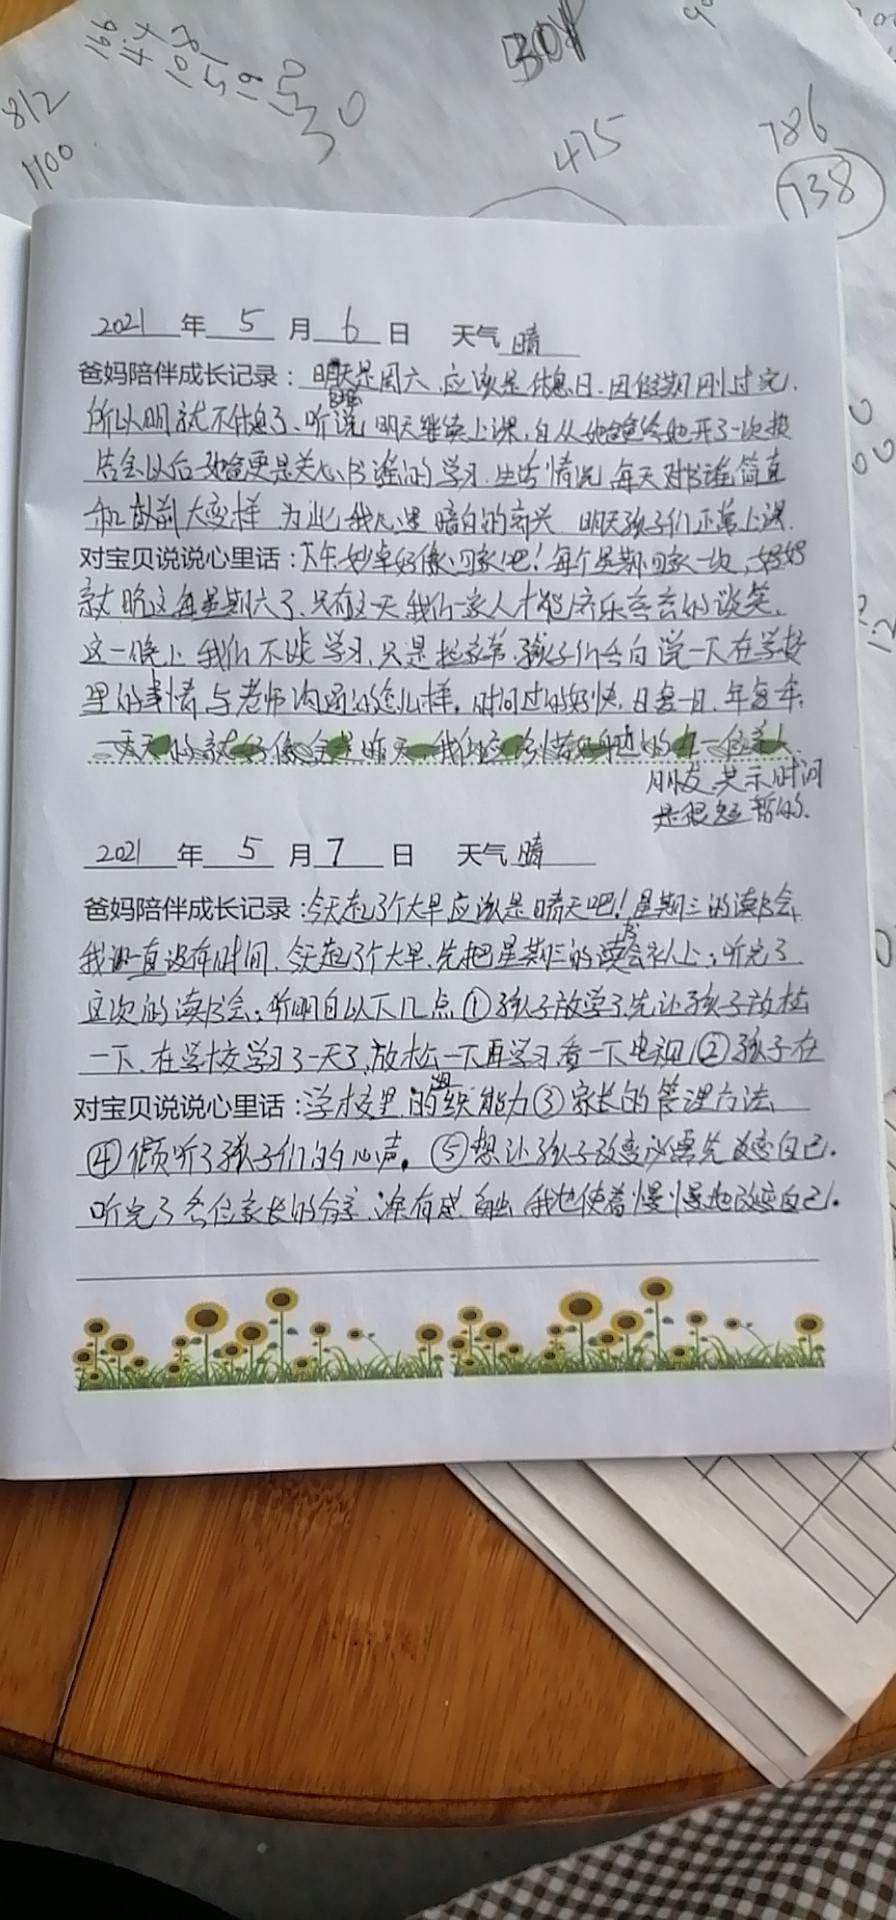 812
1100
30
BOY
475
786
738
2021 年 5 月 6 日 天气 晴
爸妈陪伴成长记录：明天是周六 应该是休息日.因假期刚过完,
所以明就不休息了、听说 明天继续上课,自从她爸爸给她开了一次报
告会以后 她爸更是关心 的学习.生活情况 每天对 简直
和以前大变样 为此我心里暗自的高兴 明天孩子们正常上课.
对宝贝说说心里话：下午 好像回家吧！每个星期回家一次,妈妈
就盼这每星期六了.只有这一天 我们一家人才能 乐 的谈笑,
这一晚上 我们不谈学习,只是拉家常.孩子们各自说一下在学校
里的事情 与老师沟通的怎么样。时间过的好快,日复一日.年复一年,
一天天的就好像全是昨天,我们应珍惜好身边的每一位亲人.
朋友.共 时间
是很短暂的.
2021 年 5 月 7 日 天气 晴
爸妈陪伴成长记录：今天起了个大早应该是晴天吧！星期三的读书会,
我 一直没有时间.今天起了个大早.先把星期三的读书会补上；听完了
这次的读书会；听明白以下几点①孩子放学了先让孩子放松
一下.在学校学习了一天了,放松一下再学习看一下电视②孩子在
对宝贝说说心里话：学校里的组织能力③家长的管理方法、
④倾听了孩子们的心声。⑤想让孩子改变必需先改变自己.
听完了各位家长的分享.深有感触 我也使着慢慢地改变自己。